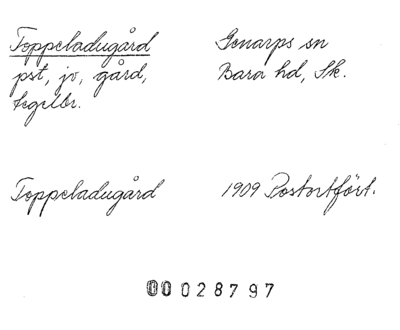 Toppeladugård
pst, jv, gård,
tegelbr.
Genarps sn
Bara hd, Sk.
Toppeladugård
1909 Postortfört.
00028797